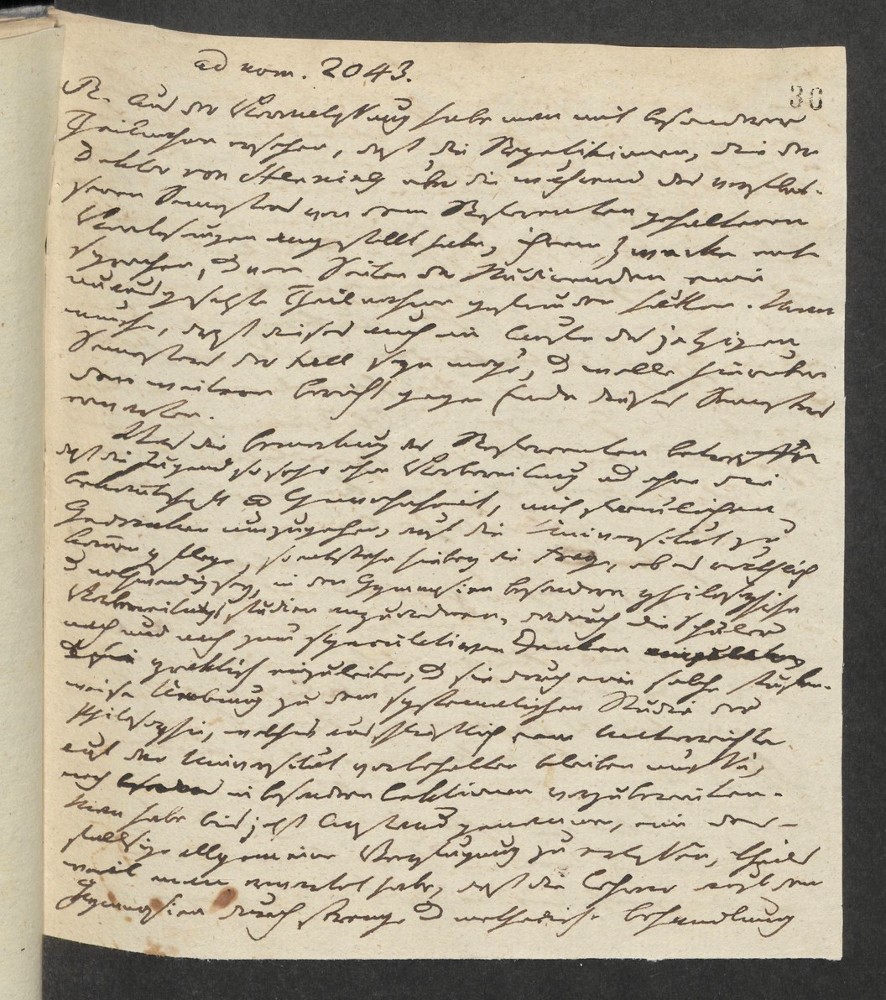 ad num. 2043.
36
R. Aus der Veranlassung habe man mit besonderer
Theilnahme ersehen, daß die Repetitionen, die der
Doktor von Henning über die während des verflos-
senen Semesters von dem Referenten gehaltenen
Vorlesungen angestellt habe, ihrem Zwecke ent-
sprochen, & von Seiten der Studierenden eine
ausgesetzte Theilnahme gefunden hätten. Man
wünsche, daß dieses auch im Laufe des jetzigen
Semesters der Fall seyn möge, & wolle hierüber
den weitern Bericht gegen Ende dieses Semesters
erwarten.
Was die Bemerkung des Referenten betreffe
daß die Jugend so sehr ohne Vorbereitung ad ohne die
Bekanntschaft & Gewohnheit, mit förmlichen
Gedanken umzugehen, auf die Universität zu
kommen pflege, so entstehe hiebey die Frage, ob es räthlich
& nothwendig sey, in den Gymnasien besondere philosophische
Vorbereitungsstudien anzuordnen, wodurch die Schüler
nach und nach zum speculativen Denken
praktisch einzuleiten, & sie durch eine solche stufen-
weise Uebung zu dem systematischen Studio der
Philosophie, welches ausschließlich dem Unterrichte
auf der Universität vorbehalten bleiben müßte,
noch in besondern Lektionen vorzubereiten.
Man habe bis jetzt Anstand genommen, eine des-
fallsige allgemeine Verfügung zu erlassen, theils
weil man erwartet habe, daß die Lehrer auf den
Gymnasien durch strenge & methodische Behandlung